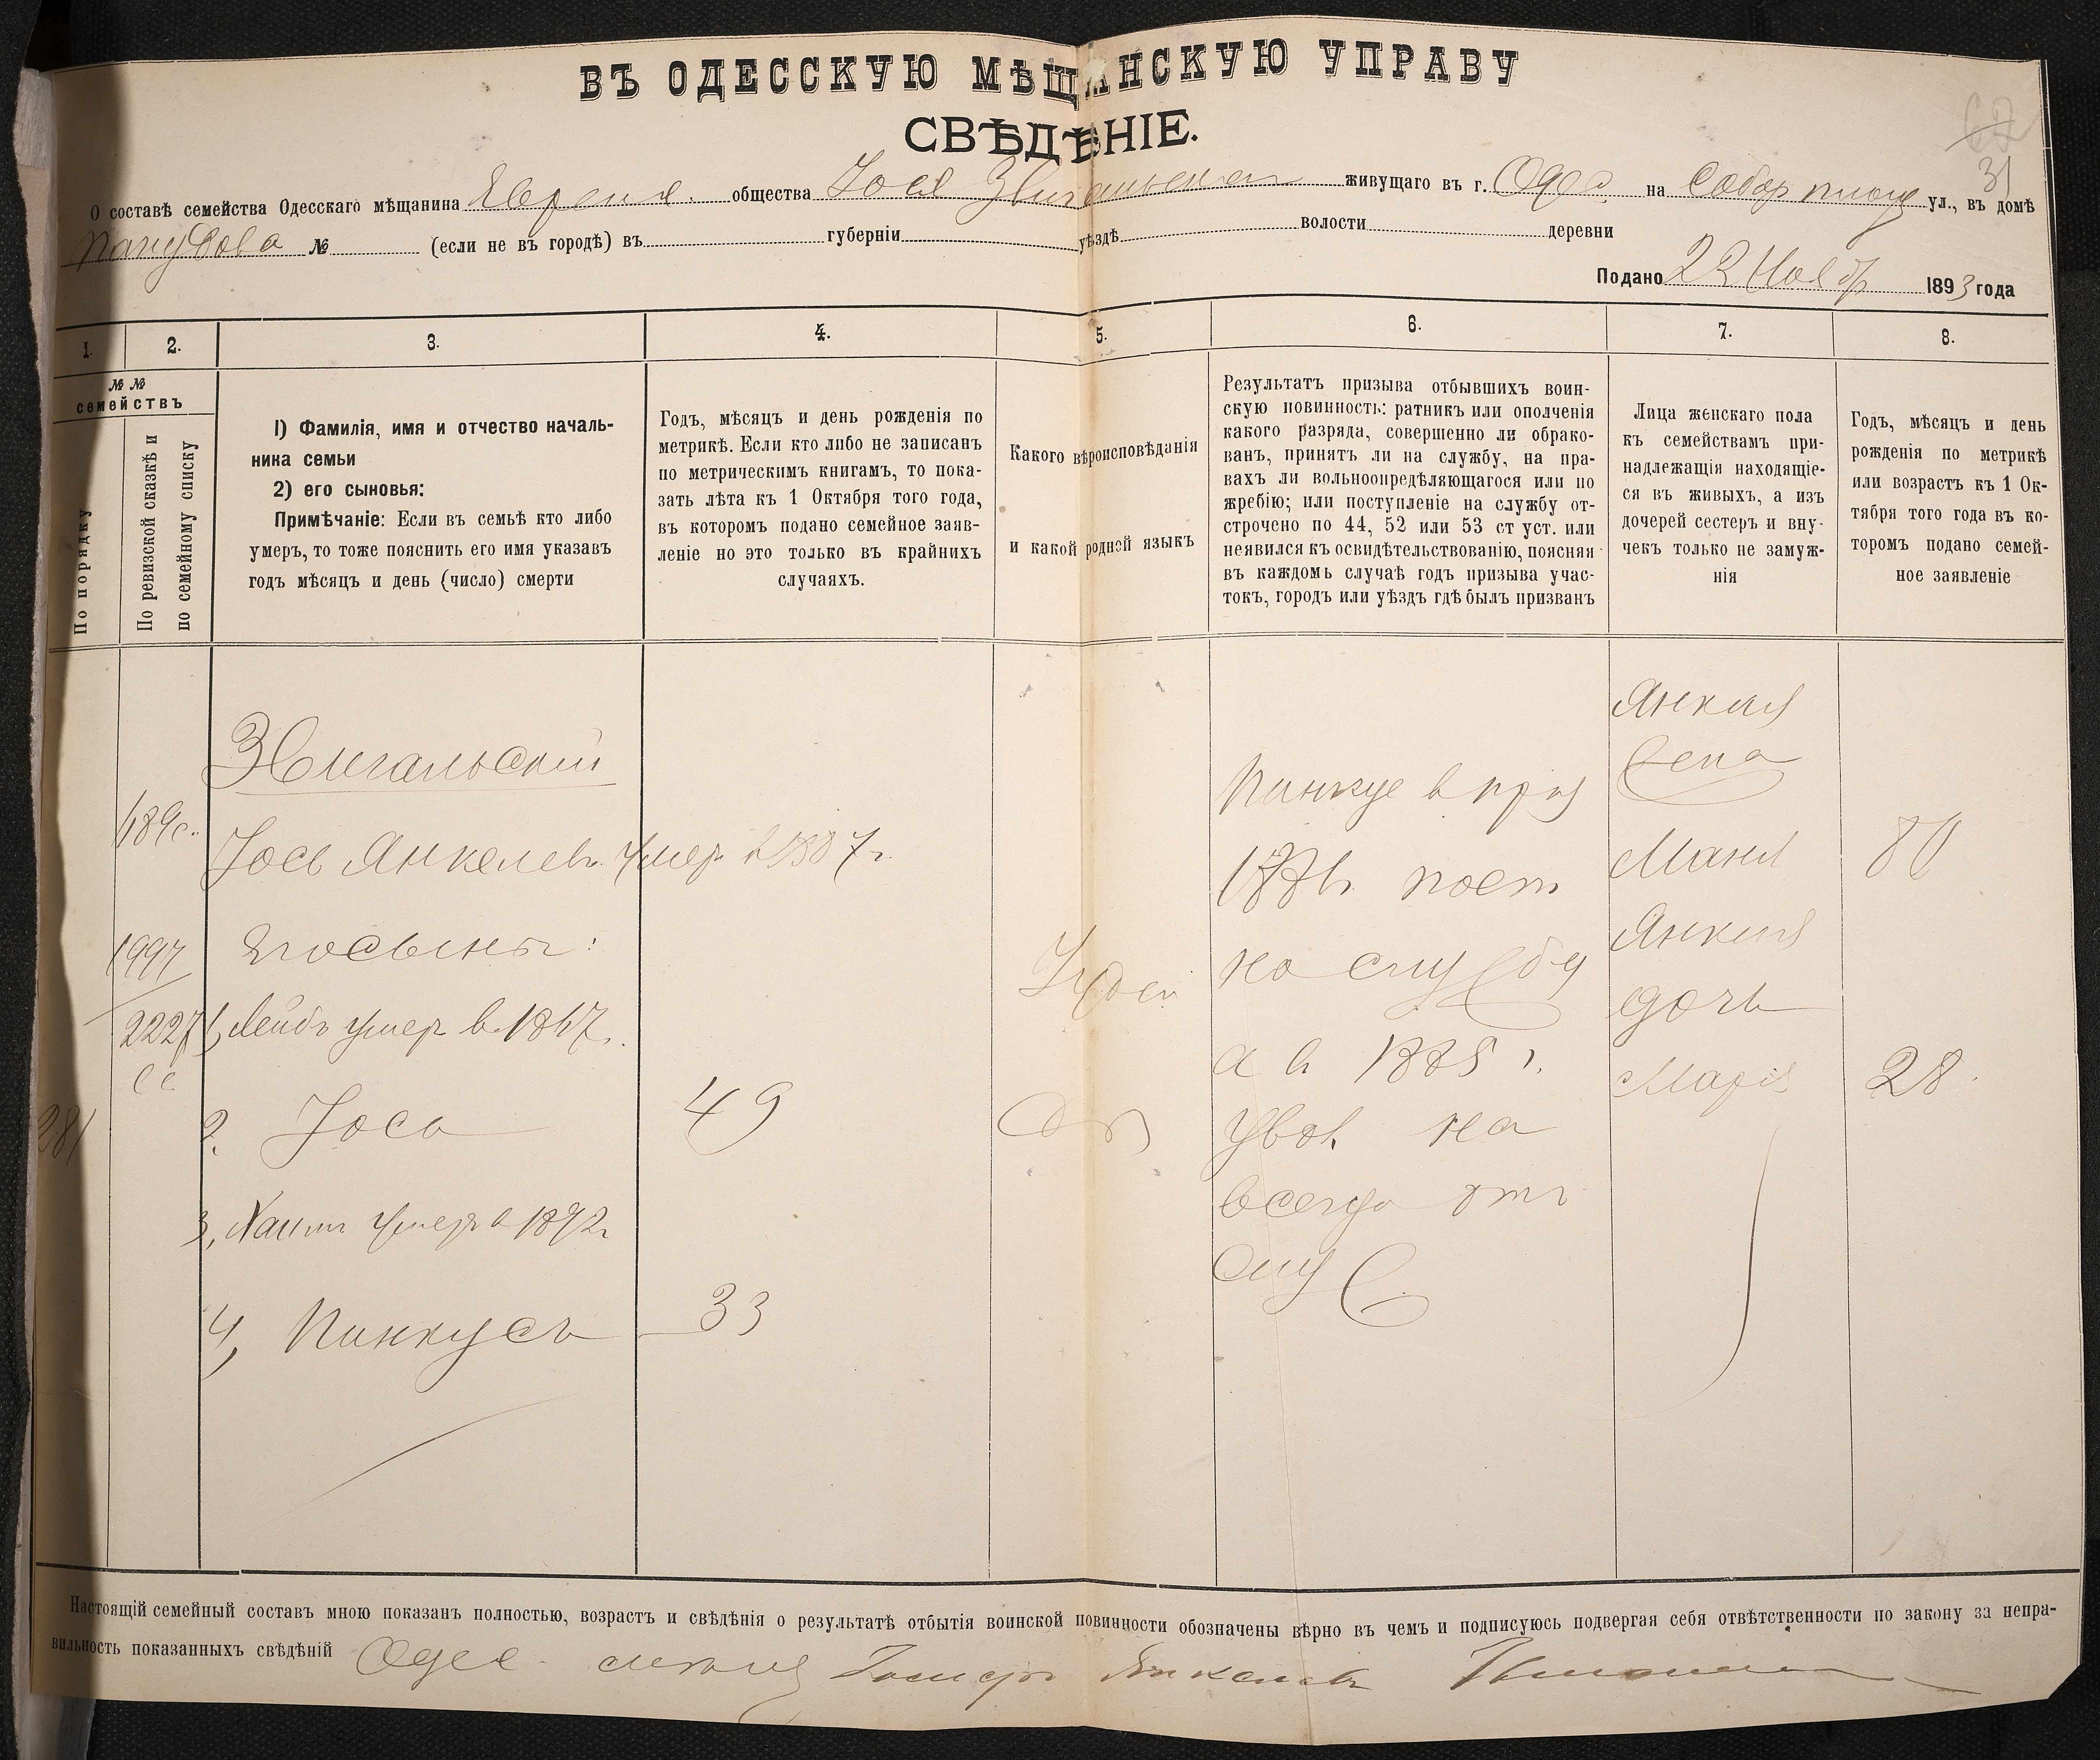 ВЪ ОДЕССКУЮ МѢЩАНСКУЮ УПРАВУ
СВѢДѢНІЕ.
31
О составѣ семейства Одесскаго мѣщанина Еврейск. общества живущаго въ г. Одес. на Собор площ ул., въ домѣ
Папудова № (если не въ городѣ) въ губерніи уѣздѣ волости деревни
Подано 22 Нояб 1893 года
1. 2. 3. 4. 5. 6. 7. 8.
№№
семействъ
По порядку
По ревизской сказкѣ и
по семейному списку
1) Фамилія, имя и отчество началь-
ника семьи
2) его сыновья:
Примѣчаніе: Если въ семьѣ кто либо
умеръ, то тоже пояснить его имя указавъ
годъ мѣсяцъ и день (число) смерти
Годъ, мѣсяцъ и день рожденія по
метрикѣ. Если кто либо не записанъ
по метрическимъ книгамъ, то пока-
зать лѣта къ 1 Октября того года,
въ котором подано семейное заяв-
леніе но это только въ крайнихъ
случаяхъ.
Какого вѣроисповѣданія
и какой родной языкъ
Результатъ призыва отбывшихъ воин-
скую повинность: ратникъ или ополченія
какого разряда, совершенно ли обрако-
ванъ, принятъ ли на службу, на пра-
вахъ ли вольноопредѣляющагося или по
жребію; или поступленіе на службу от-
строчено по 44, 52 или 53 ст уст. или
неявился къ освидѣтельствованію, поясняя
въ каждомъ случаѣ годъ призыва учас-
токъ, городъ или уѣздъ гдѣ былъ призванъ
Лица женскаго пола
къ семействамъ при-
надлежащія находящіе-
ся въ живыхъ, а изъ
дочерей сестеръ и вну-
чекъ только не замуж-
нія
Годъ, мѣсяцъ и день
рожденія по метрикѣ
или возрастъ къ 1 Ок-
тября того года въ ко-
торомъ подано семей-
ное заявленіе
Звигальскій
Іось Янкелев. умер. в 1887 г.
Его сыны:
1997
2227
1, Лейбъ умер в 1867.
281
2. Іось 49
3, Хаимъ умеръ в 1892 г
4, Пинкусъ 33
Іудей
Пинкус в приз
пост
на службу
а в 1885 г.
увол на
всегда отъ
служ
Янкеля
жена
Маня 80
Янкеля
дочь
Марія 28
Настоящій семейный составъ мною показанъ полностью, возрастъ и свѣдѣнія о результатѣ отбытія воинской повинности обозначены вѣрно въ чемъ и подписуюсь подвергая себя отвѣтственности по закону за непра-
вильность показанныхъ свѣдѣній Одес.